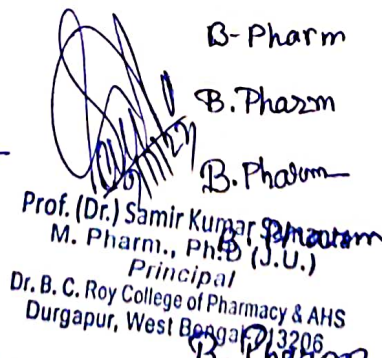 B-Pharm
B.Pharm
B.Pharm
B.Pharm
Prof. (Dr.) Samir Kumar
M. Pharm., Ph.D (J.U.)
Principal
Dr. B. C. Roy College of Pharmacy & AHS
Durgapur, West Bengal 713206
B.Pharm